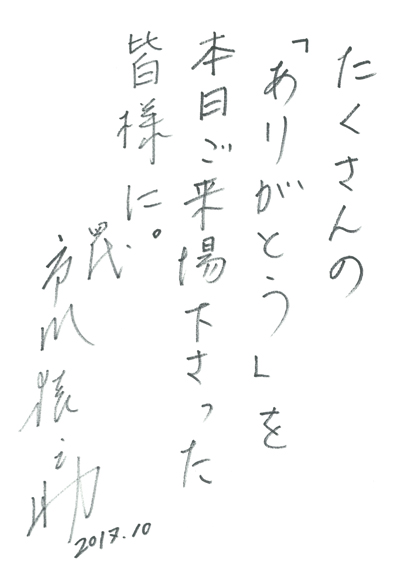 たくさんの
「ありがとう」を
本日ご来場下さった
皆様に。
四代
市川猿之助
2017.10